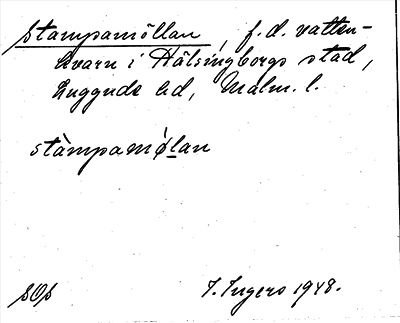 Stampamöllan, f.d. vatten-
kvarn i Hälsingborgs stad,
Luggude hd, Malm. l.
stàmpamǿlan
SOS
I. Ingers 1948.